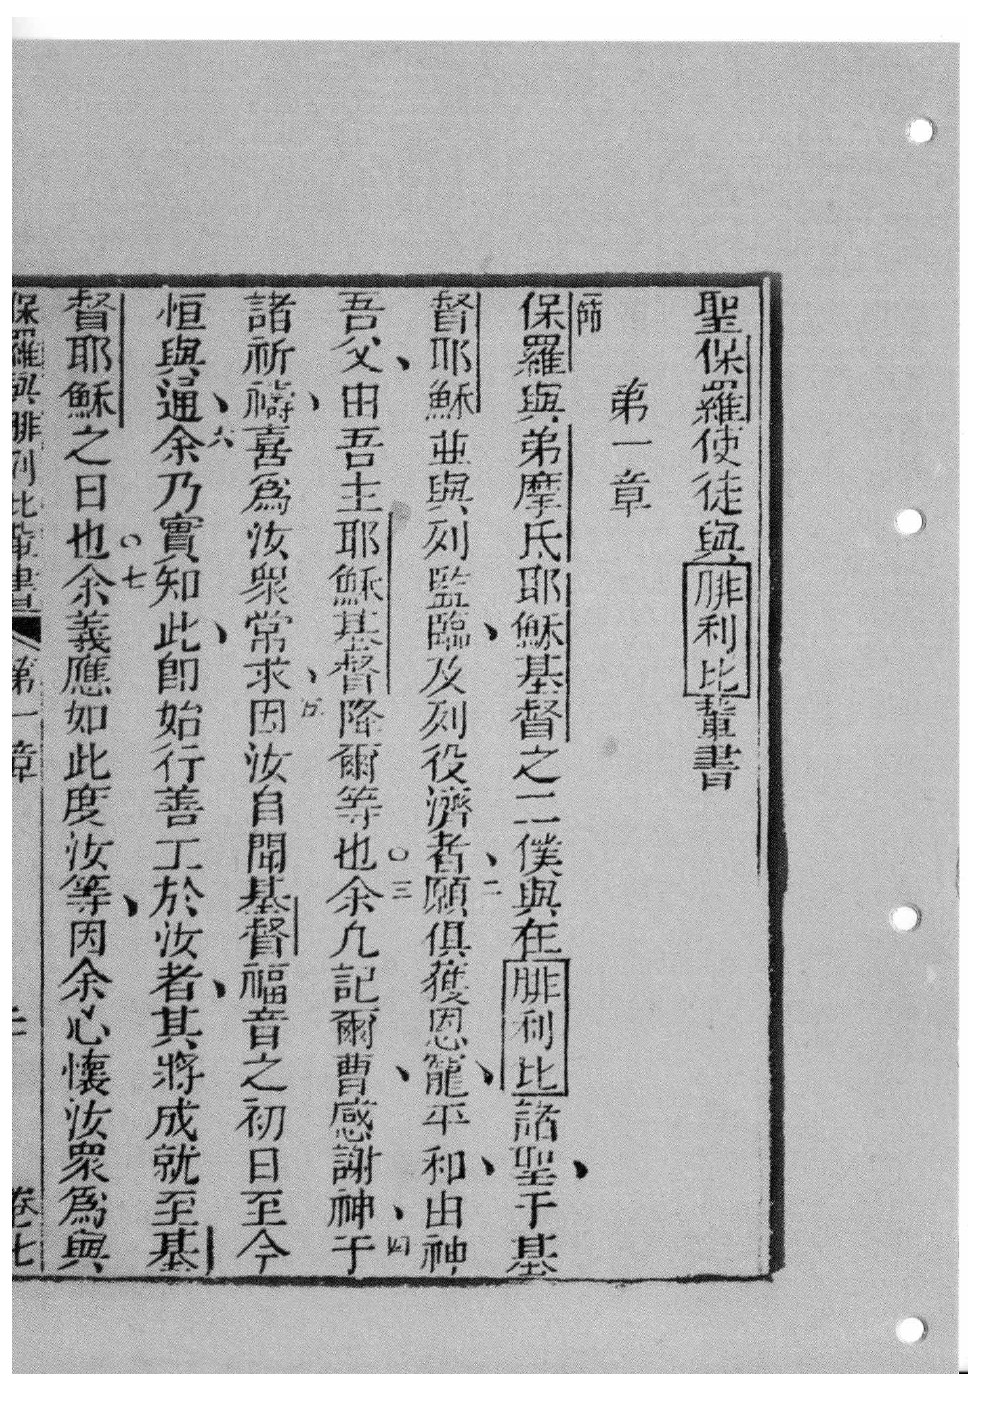 聖保羅使徒與腓利比輩書
第一章
一節
保羅與弟摩氐耶穌基督之二僕與在腓利比諸聖、于基
督耶穌並與列監臨、及列役濟者、二願俱獲恩寵、平和、由神
吾父、由吾主耶穌基督降爾等也○三余凢記爾曹、感謝神、四于
諸祈禱、喜為汝眾常求、五因汝自聞基督福音之初日至今
恒與通、六余乃實知此、即始行善工於汝者、其將成就至基
督耶穌之日也○七余義應如此度汝等、因余心懷汝眾為與
保羅與腓列比輩書 第一章 二 卷七